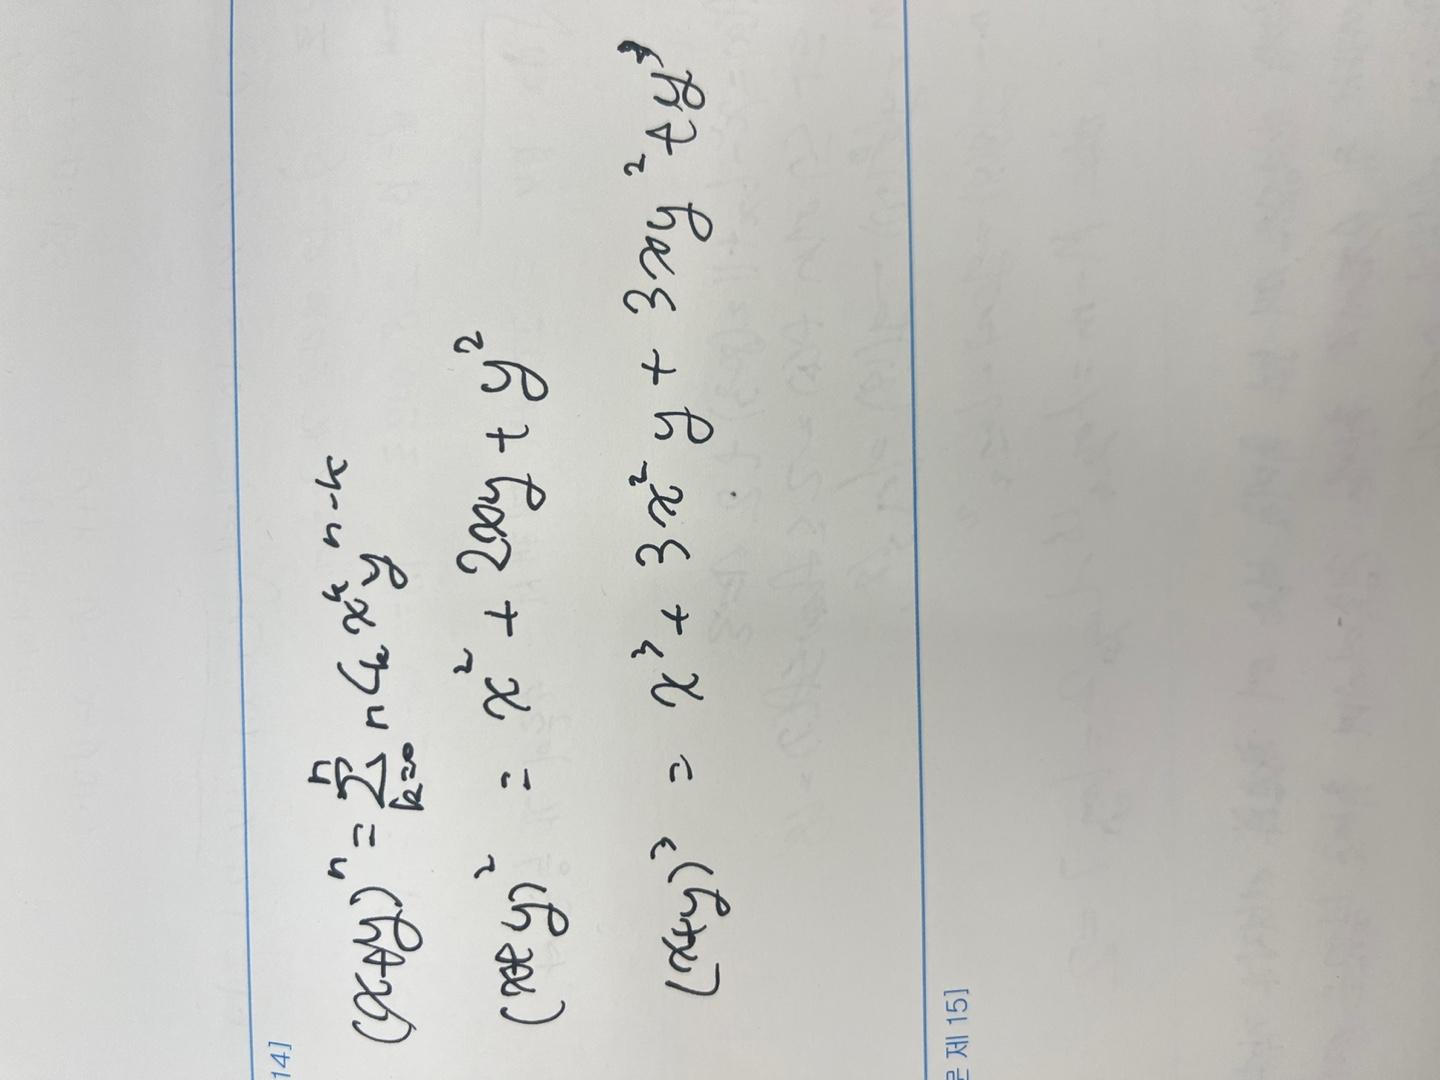 14]
(x+y)^n = \sum_{k=0}^{n} nC_k x^k y^{n-k}
(x+y)^2 = x^2 + 2xy + y^2
(x+y)^3 = x^3 + 3x^2y + 3xy^2 + y^3
문제 15]